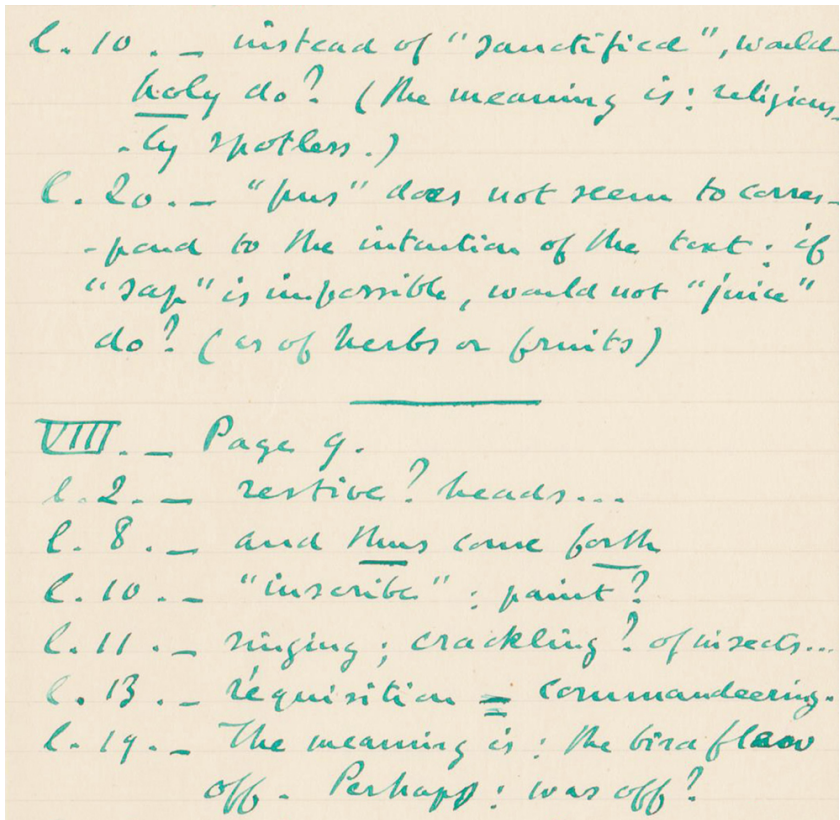 l. 10. — instead of "sanctified", would
holy do? (the meaning is: religious-
-ly spotless.)
l. 20. — "pus" does not seem to corres-
-pond to the intention of the text: if
"sap" is impossible, would not "juice"
do? (as of herbs or fruits)
VIII. — Page 9.
l. 2. — restive? heads...
l. 8. — and thus come forth
l. 10. — "inscribe": paint?
l. 11. — singing; crackling? of insects...
l. 13. — réquisition = commandeering.
l. 19. — The meaning is: the bird flew
off. Perhaps: was off?